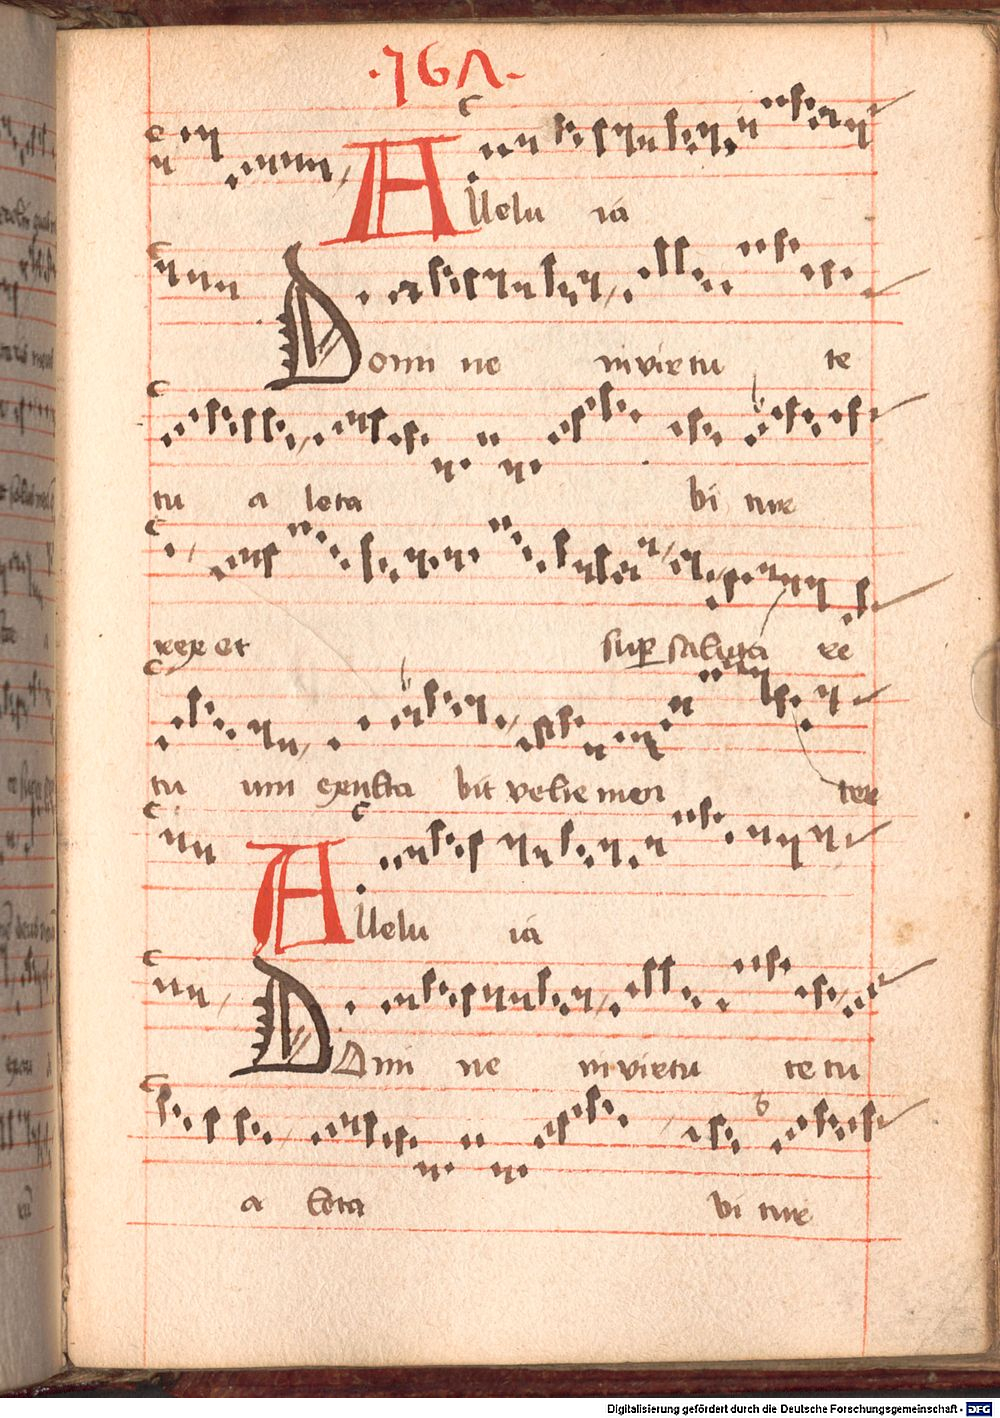 ·167·
Allelu ia
Domi ne in virtu te
tu a leta bi tur
rex et sup saluta re
tu um exulta bit vehemen ter
Allelu ia
Domi ne in virtu te tu
a leta bi tur
Digitalisierung gefördert durch die Deutsche Forschungsgemeinschaft - DFG